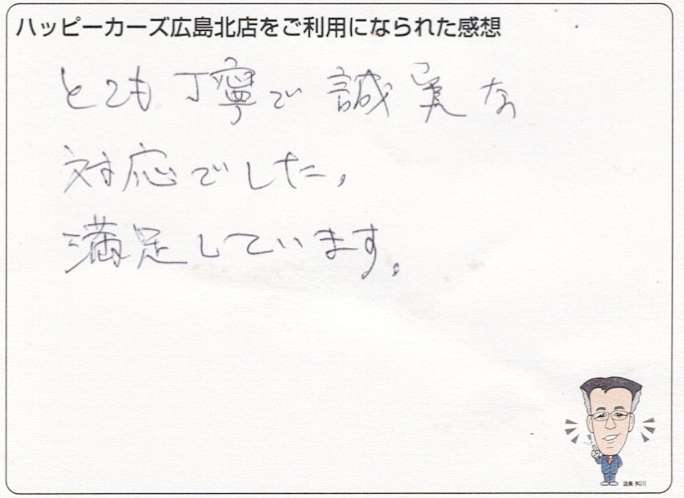 ハッピーカーズ広島北店をご利用になられた感想
とても丁寧で誠実な
対応でした。
満足しています。